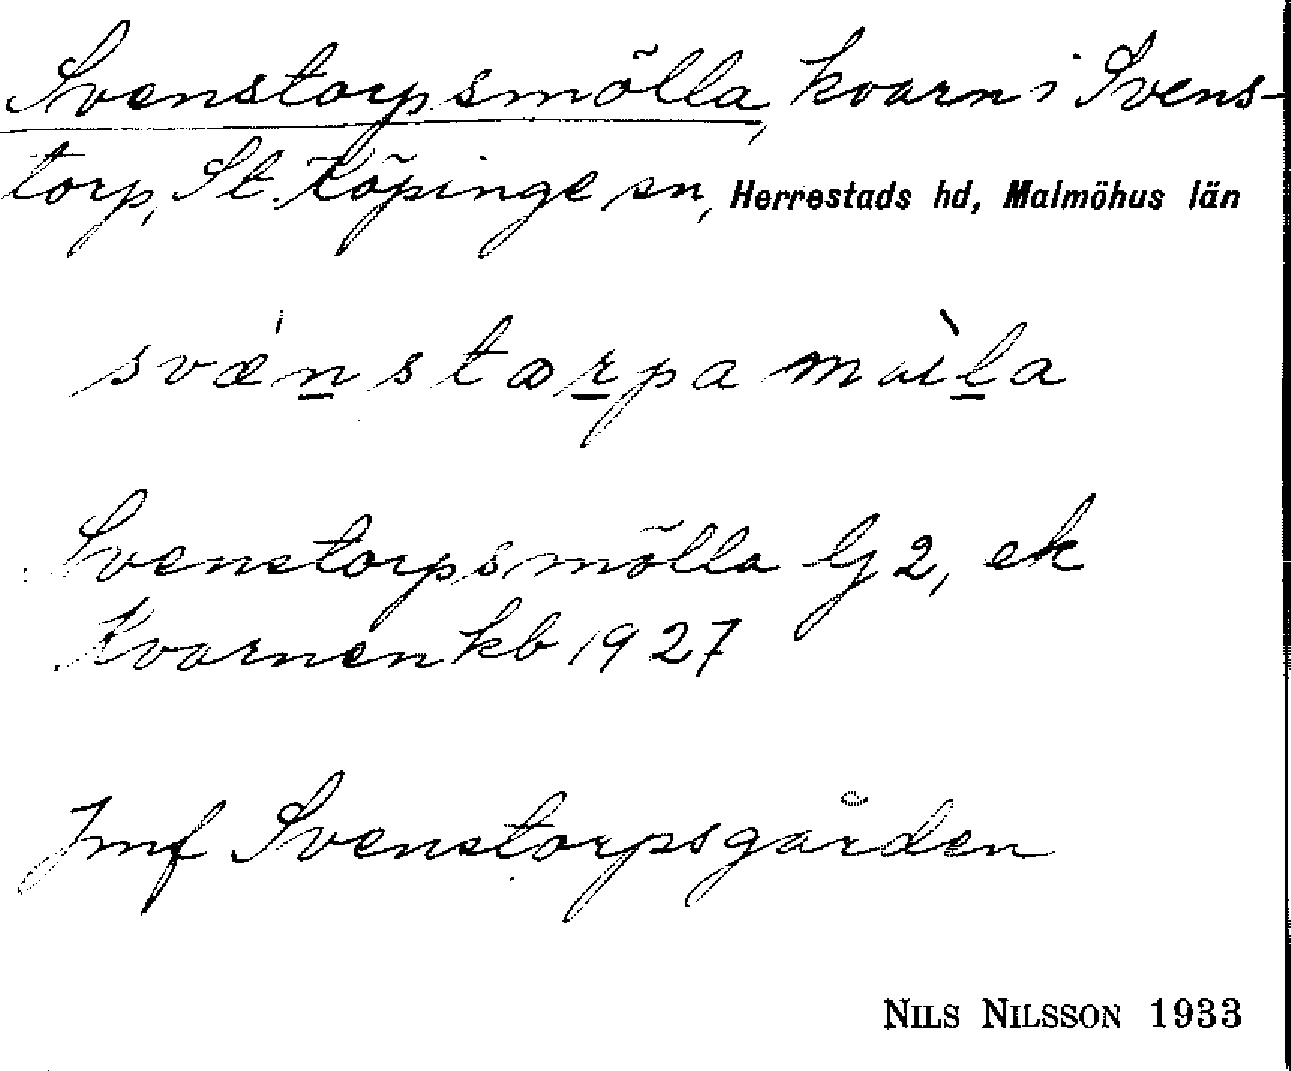 Svenstorpsmölla, kvarn i Svens-
torp, St. Köpinge sn, Herrestads hd, Malmöhus län
Svenstorpsmölla lj 2, ek
Kvarnen kb 1927
Jmf Svenstorpsgården
NILS NILSSON 1933